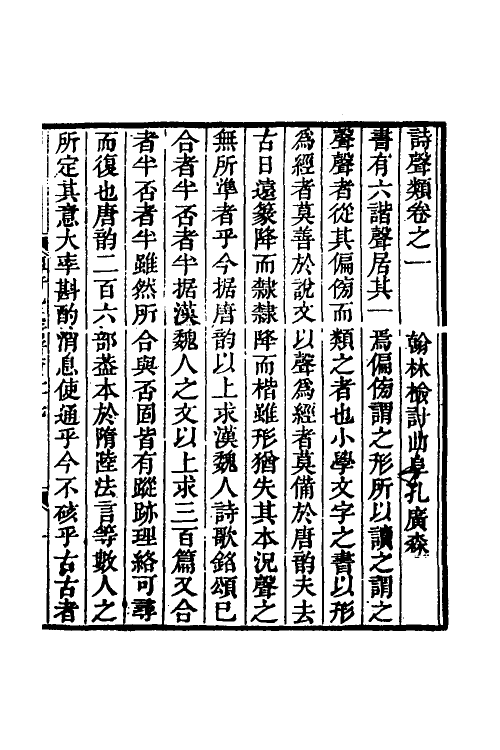 詩聲類卷之一
翰林檢討曲阜孔廣森
書有六諧聲居其一焉偏㑄謂之形所以讀之謂之
聲聲者從其偏㑄而類之者也小學文字之書以形
爲經者莫善於說文以聲爲經者莫備於唐韵夫去
古日遠篆降而隸隸降而楷雖形猶失其本況聲之
無所準者乎今据唐韵以上求漢魏人詩歌銘頌已
合者半否者半据漢魏人之文以上求三百篇又合
者半否者半雖然所合與否固皆有蹤跡理絡可尋
而復也唐韵二百六部葢本於隋陸法言等數人之
所定其意大率斟酌消息使通乎今不硋乎古古者